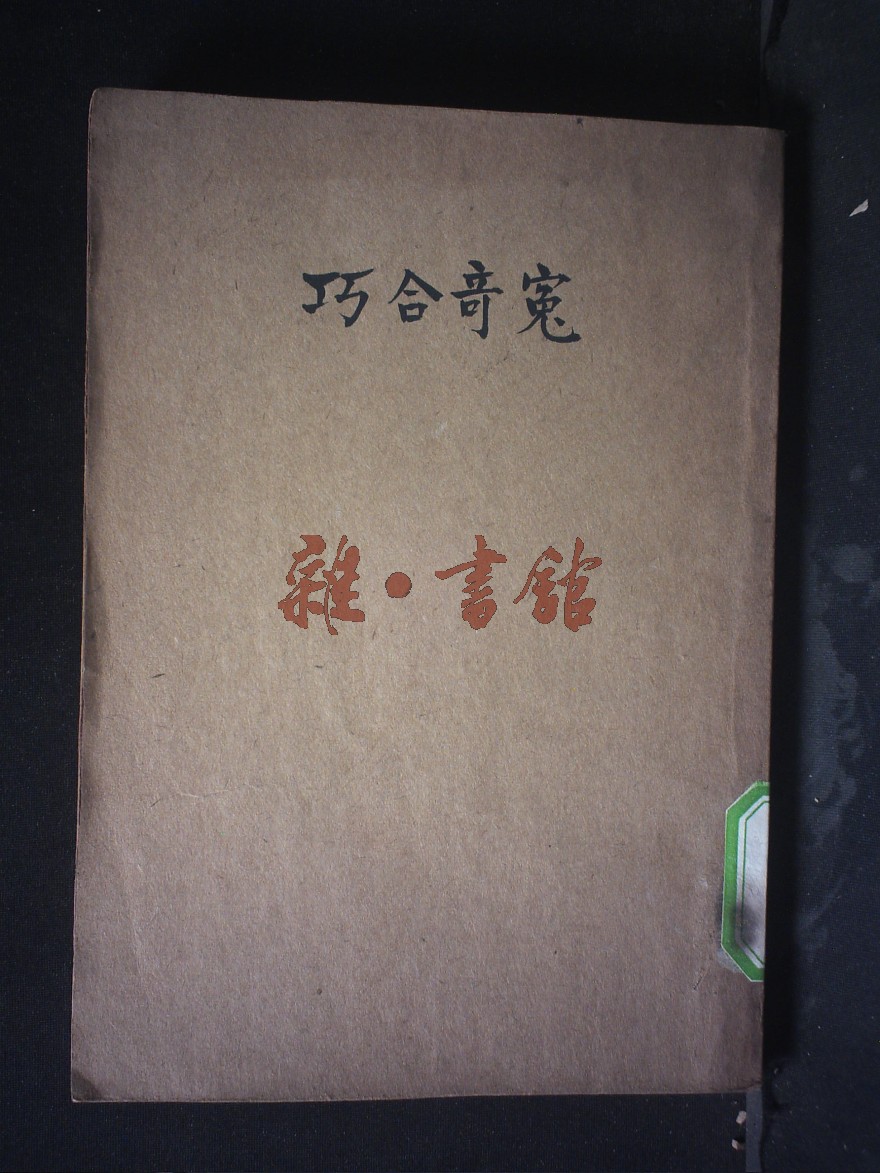 巧合奇冤
雜·書館